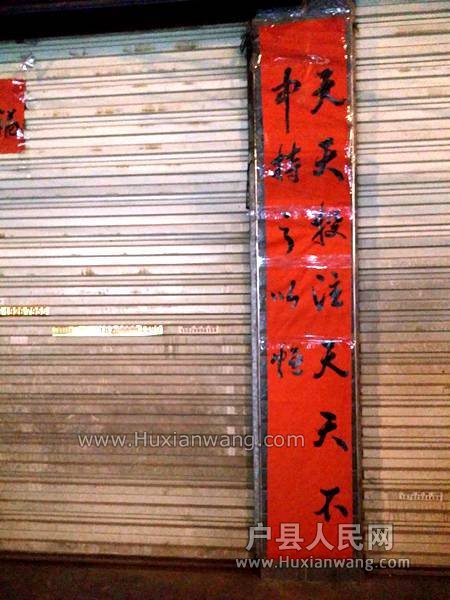 天天投注天天不
中持之以恒
www.Huxianwang.com
户县人民网
www.Huxianwang.com